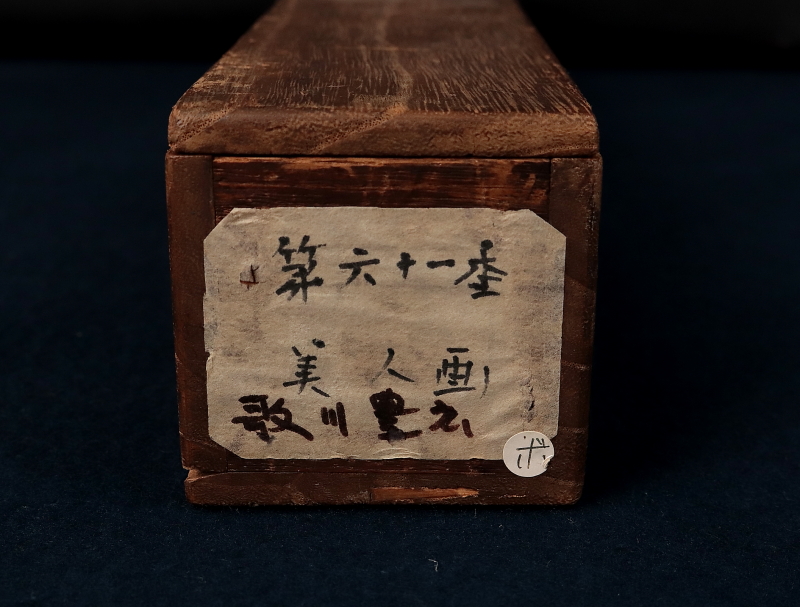 第六十一番
美人画
歌川豊広